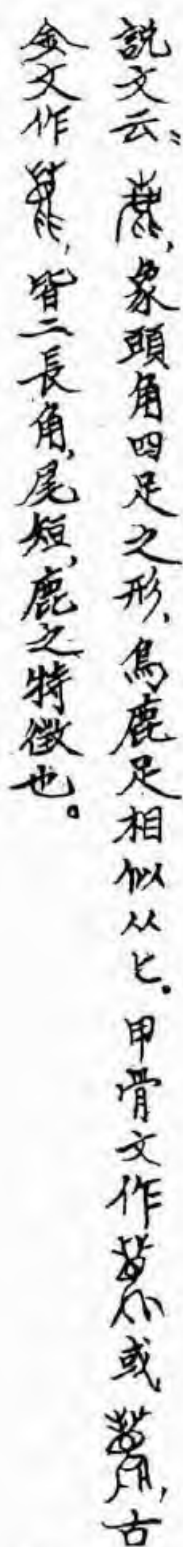 説文云：，象頭角四足之形，鳥鹿足相似从匕。甲骨文作或，古
金文作，皆二長角，尾短，鹿之特徵也。